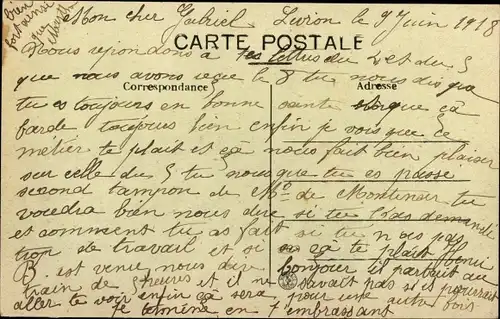 bien
fort ainsi
que
Mon cher Gabriel Livron le 9 Juin 1918
CARTE POSTALE
Nous repondons a tes lettres du 2 et du 5
que nous avons reçu le 8 tu nous dis que
Correspondance Adresse
tu es toujours en bonne santé et que ça
barde toujours bien enfin je vois que ce
métier te plait et ça nous fait bien plaisir
sur celle du 5 tu nous que tu es passé
second tampon de de tu
voudra bien nous dire si tu l'as demandé
et comment tu as fait si tu n'as pas
trop de travail et si ça te plait Henri
B. est venu nous dire bonjour il partait au
train de 5 heures et il ne savait pas si il pourrait
aller te voir enfin ça sera pour une autre fois
je termine en t'embrassant